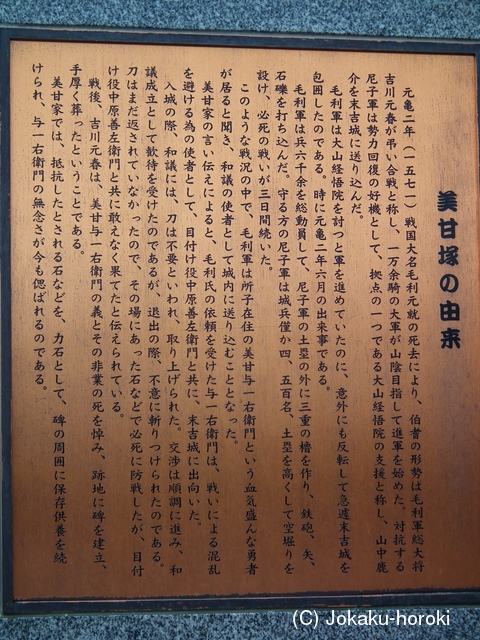 美甘塚の由来
元亀二年（一五七一）戦国大名毛利元就の死去により、伯耆の形勢は毛利軍総大将
吉川元春が弔い合戦と称し、一万余騎の大軍が山陰目指して進軍を始めた。対抗する
尼子軍は勢力回復の好機として、拠点の一つである大山経悟院の支援と称し、山中鹿
介を末吉城に送り込んだ。
毛利軍は大山経悟院を討つと軍を進めていたのに、意外にも反転して急遽末吉城を
包囲したのである。時に元亀二年六月の出来事である。
毛利軍は兵六千余を総動員して、尼子軍の土塁の外に三重の櫓を作り、鉄砲、矢、
石礫を打ち込んだ。守る方の尼子軍は城兵僅か四、五百名、土塁を高くして空堀りを
設け、必死の戦いが三日間続いた。
このような戦況の中で、毛利軍は所子在住の美甘与一右衛門という血気盛んな勇者
が居ると聞き、和議の使者として城内に送り込むこととなった。
美甘家の言い伝えによると、毛利氏の依頼を受けた与一右衛門は、戦いによる混乱
を避ける為の使者として、目付け役中原善左衛門と共に、末吉城に出向いた。
入城の際、和議には、刀は不要といわれ、取り上げられた。交渉は順調に進み、和
議成立として歓待を受けたのであるが、退出の際、不意に斬りつけられたのである。
刀はまだ返されていなかったので、その場にあった石などで必死に防戦したが、目付
け役中原善左衛門と共に敢えなく果てたと伝えられている。
戦後、吉川元春は、美甘与一右衛門の義とその非業の死を悼み、跡地に碑を建立、
手厚く葬ったということである。
美甘家では、抵抗したとされる石などを、力石として、碑の周囲に保存供養を続
けられ、与一右衛門の無念さが今も偲ばれるのである。
(C) Jokaku-horoki